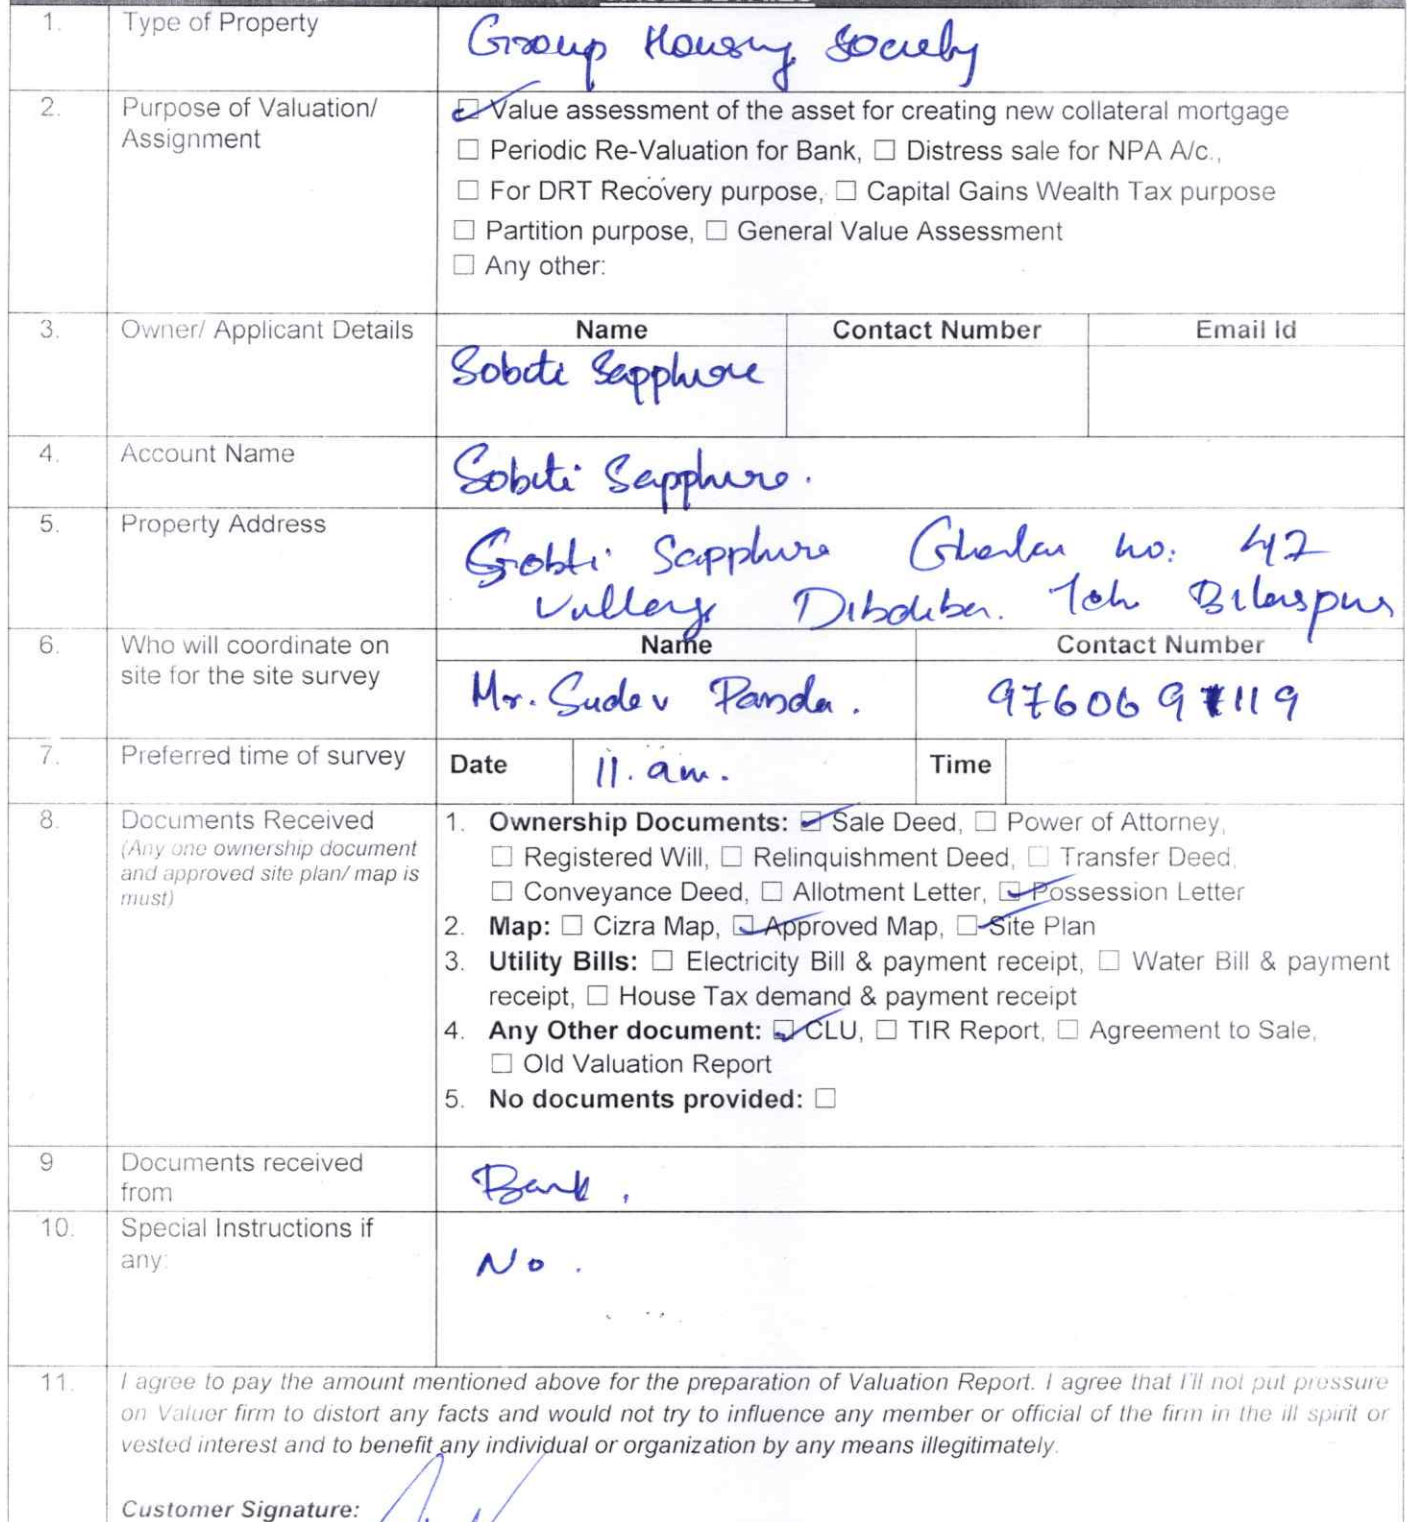 1. Type of Property Group Housing Society
2. Purpose of Valuation/ Assignment
☑ Value assessment of the asset for creating new collateral mortgage
☐ Periodic Re-Valuation for Bank, ☐ Distress sale for NPA A/c.,
☐ For DRT Recovery purpose, ☐ Capital Gains Wealth Tax purpose
☐ Partition purpose, ☐ General Value Assessment
☐ Any other:
3. Owner/ Applicant Details Name Contact Number Email Id
Sobti Sapphire
4. Account Name Sobti Sapphire.
5. Property Address Sobti Sapphire no. 42
Village Dibdiba. Teh Bilaspur
6. Who will coordinate on site for the site survey Name Contact Number
Mr. Sudev Panda. 9760697119
7. Preferred time of survey Date 11. am. Time
8. Documents Received
(Any one ownership document
and approved site plan/ map is
must)
1. Ownership Documents: ☑ Sale Deed, ☐ Power of Attorney,
☐ Registered Will, ☐ Relinquishment Deed, ☐ Transfer Deed,
☐ Conveyance Deed, ☐ Allotment Letter, ☑ Possession Letter
2. Map: ☐ Cizra Map, ☑ Approved Map, ☑ Site Plan
3. Utility Bills: ☐ Electricity Bill & payment receipt, ☐ Water Bill & payment
receipt, ☐ House Tax demand & payment receipt
4. Any Other document: ☑ CLU, ☐ TIR Report, ☐ Agreement to Sale,
☐ Old Valuation Report
5. No documents provided: ☐
9 Documents received from Bank.
10. Special Instructions if any: No.
11. I agree to pay the amount mentioned above for the preparation of Valuation Report. I agree that I'll not put pressure
on Valuer firm to distort any facts and would not try to influence any member or official of the firm in the ill spirit or
vested interest and to benefit any individual or organization by any means illegitimately.
Customer Signature: